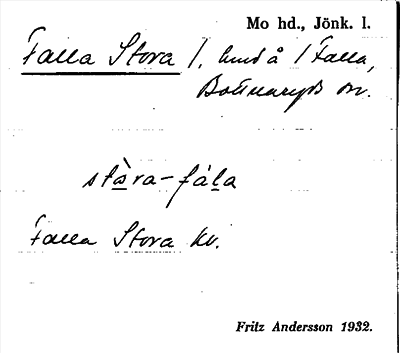 Mo hd., Jönk. l.
Falla Stora l. lund å / Falla,
Bottnaryds sn.
stàra-fála
Falla Stora kv.
Fritz Andersson 1932.